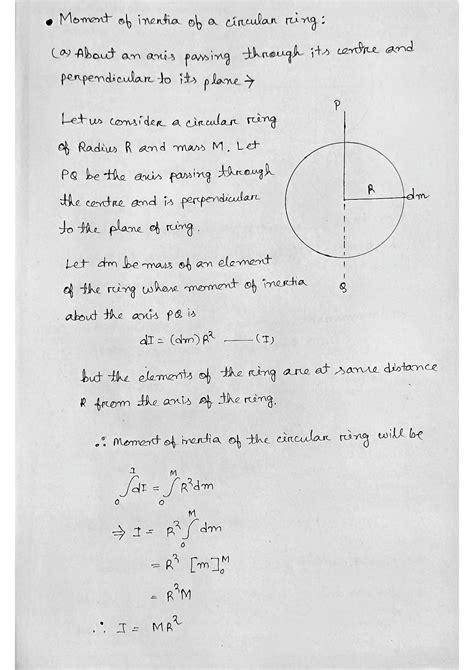 • Moment of inertia of a circular ring:
(a) About an axis passing through its centre and
perpendicular to its plane →
Let us consider a circular ring
of Radius R and mass M. Let
PQ be the axis passing through
the centre and is perpendicular
to the plane of ring.
Let dm be mass of an element
of the ring whose moment of inertia
about the axis PQ is
dI = (dm)R² —— (I)
P
R
dm
Q
but the elements of the ring are at same distance
R from the axis of the ring.
∴ Moment of inertia of the circular ring will be
∫₀ᴵ dI = ∫₀ᴹ R²dm
⇒ I = R² ∫₀ᴹ dm
= R² [m]₀ᴹ
= R²M
∴ I = MR²